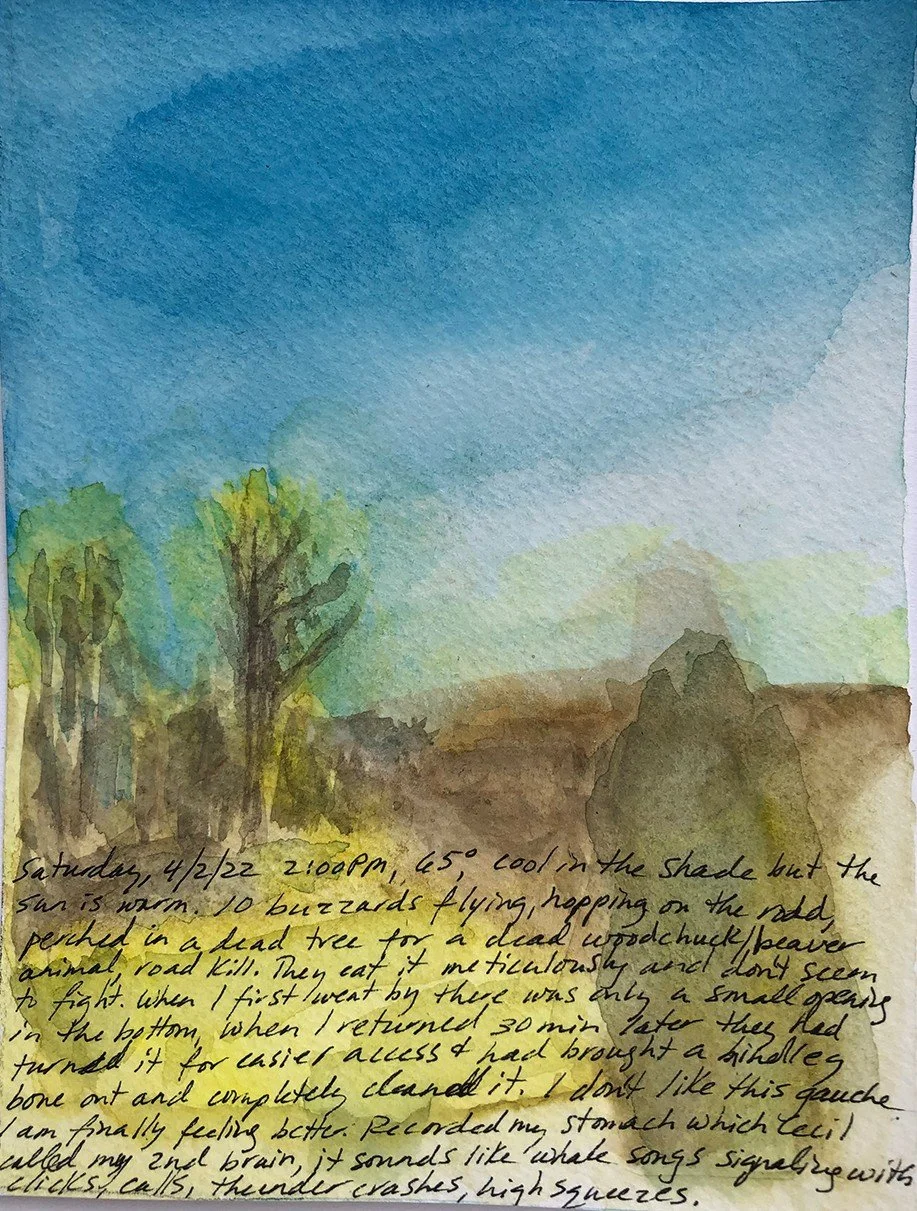 Saturday, 4/2/22 2:00PM, 65°, cool in the shade but the
sun is warm. 10 buzzards flying, hopping on the road,
perched in a dead tree for a dead woodchuck/beaver
animal, road kill. They eat it meticulously and don't seem
to fight. When I first went by there was only a small opening
in the bottom, when I returned 30 min later they had
turned it for easier access & had brought a hindleg
bone out and completely cleaned it. I don't like this gauche
I am finally feeling better. Recorded my stomach which Cecil
called my 2nd brain, it sounds like whale songs signaling with
clicks, calls, thunder crashes, high squeezes.